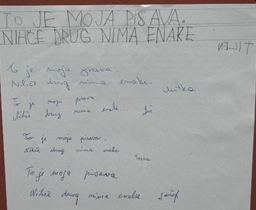 TO JE MOJA PISAVA.
NIHČE DRUG NIMA ENAKE
To je moja pisava.
Nihče drug nima enake.
To je moja pisava
Nihče drug nima enake
To je moja pisava.
Nihče drug nima enake
To je moja pisava
Nihče drug nima enake